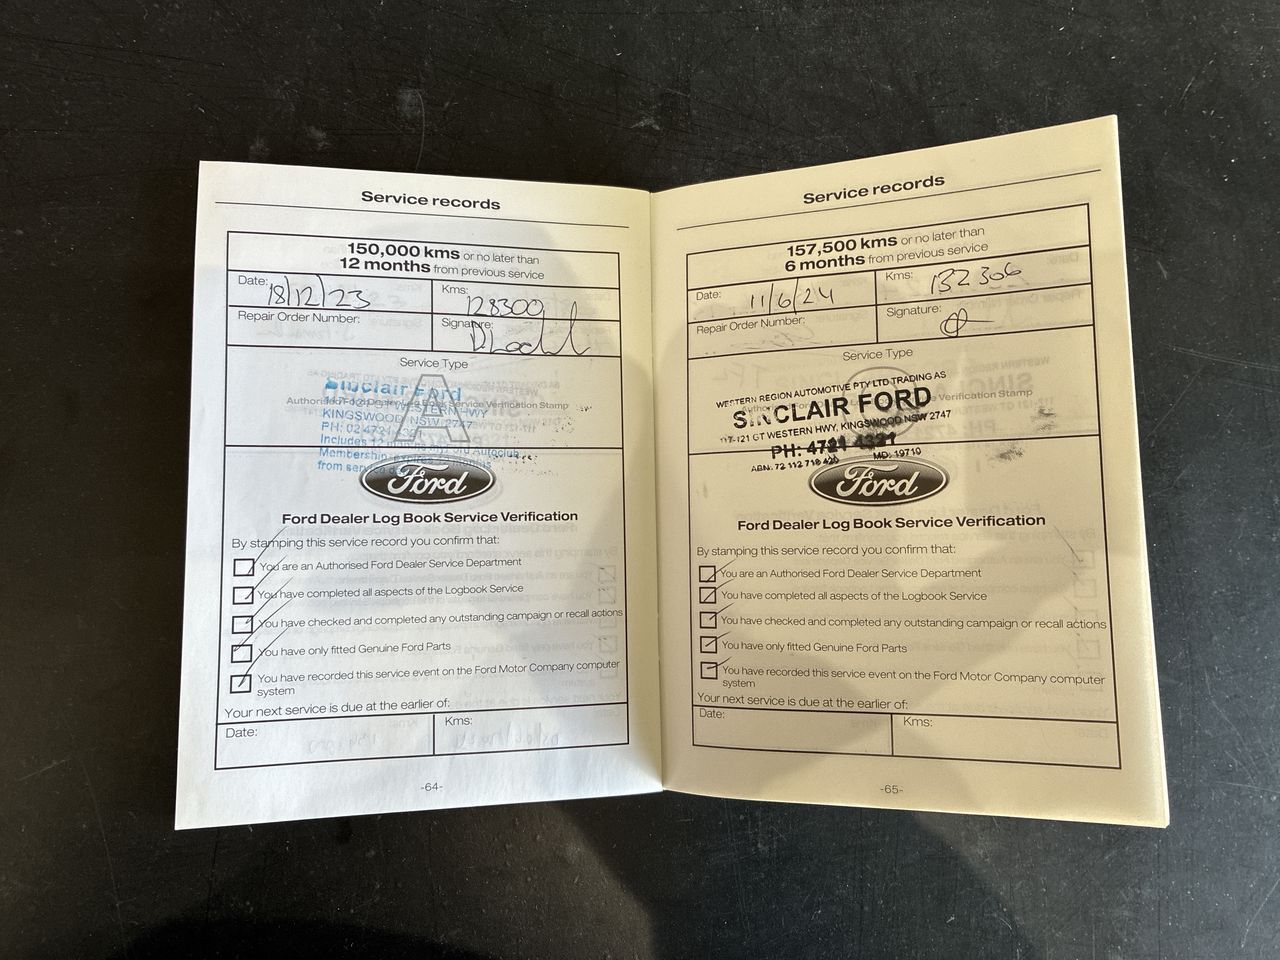 Service records
150,000 kms or no later than
12 months from previous service
Date: 18/12/23
Kms: 128300
Repair Order Number:
Signature:
Service Type
A
Sinclair Ford
Authorised Ford Dealer Log Book Service Verification Stamp
WESTERN HWY
KINGSWOOD NSW 2747
PH: 02 4721
Includes 12 Autoclub
Membership expires
from service
Ford
Ford Dealer Log Book Service Verification
By stamping this service record you confirm that:
You are an Authorised Ford Dealer Service Department
You have completed all aspects of the Logbook Service
You have checked and completed any outstanding campaign or recall actions
You have only fitted Genuine Ford Parts
You have recorded this service event on the Ford Motor Company computer
system
Your next service is due at the earlier of:
Date:
Kms:
-64-
Service records
157,500 kms or no later than
6 months from previous service
Date: 11/6/24
Kms: 132306
Repair Order Number:
Signature:
Service Type
WESTERN REGION AUTOMOTIVE PTY LTD TRADING AS
Service Verification Stamp
SINCLAIR FORD
117-121 GT WESTERN HWY, KINGSWOOD NSW 2747
PH: 4721 4321
ABN: 72 112 718 420 MD: 19710
Ford
Ford Dealer Log Book Service Verification
By stamping this service record you confirm that:
You are an Authorised Ford Dealer Service Department
You have completed all aspects of the Logbook Service
You have checked and completed any outstanding campaign or recall actions
You have only fitted Genuine Ford Parts
You have recorded this service event on the Ford Motor Company computer
system
Your next service is due at the earlier of:
Date:
Kms:
-65-